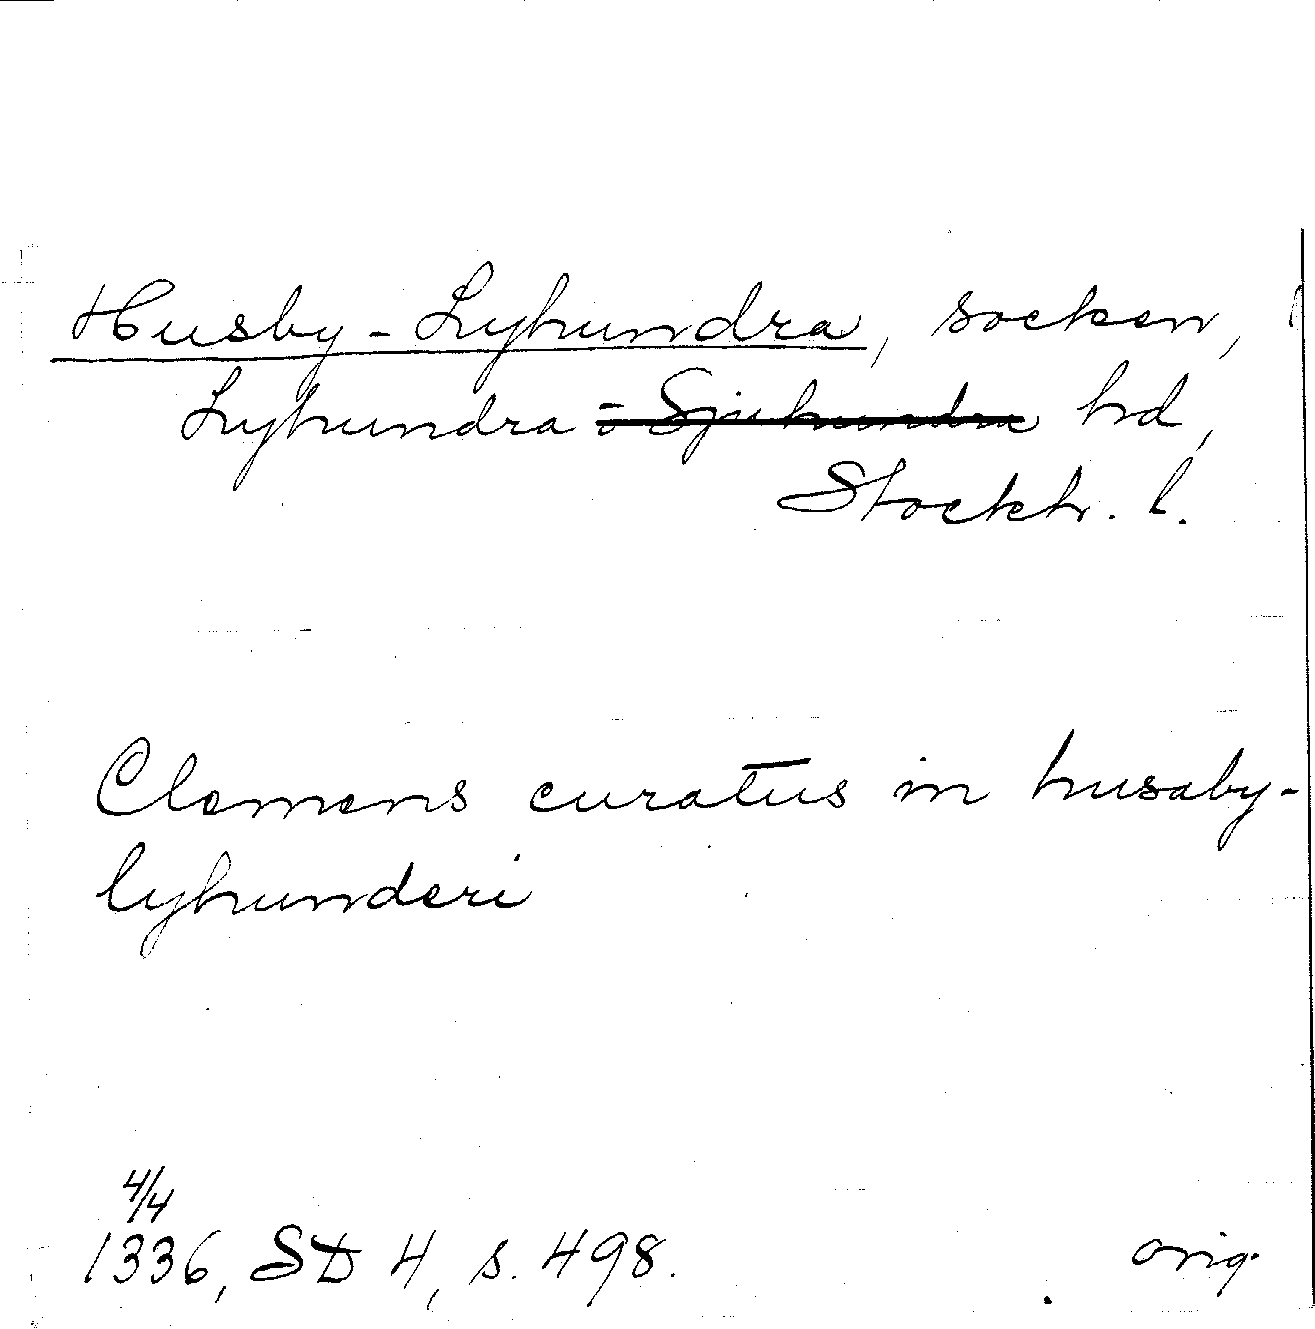 Husby-Lyhundra, socken,
Lyhundra o Sjuhundra hd,
Stockh. l.
Clemens curatus in husaby-
lyhunderi
4/4
1336, SD 4, s. 498.
orig.